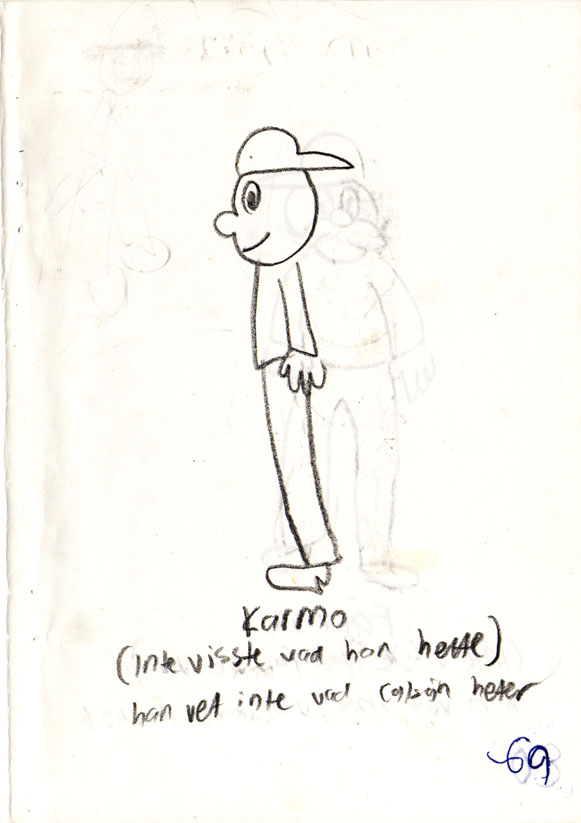 Karmo
(inte visste vad han hette)
han vet inte vad heter
69